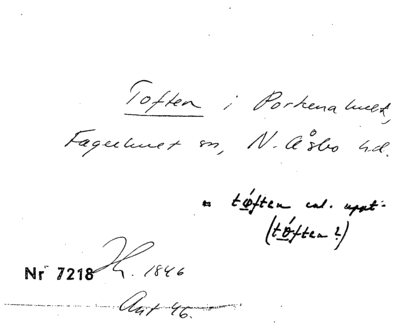 Toften i Porkenahult,
Fagerhult sn, N. Åsbo hd.
= tǿften enl. uppt.
(tǿften?)
Nr 7218 Jh. 1846
Ant 46.